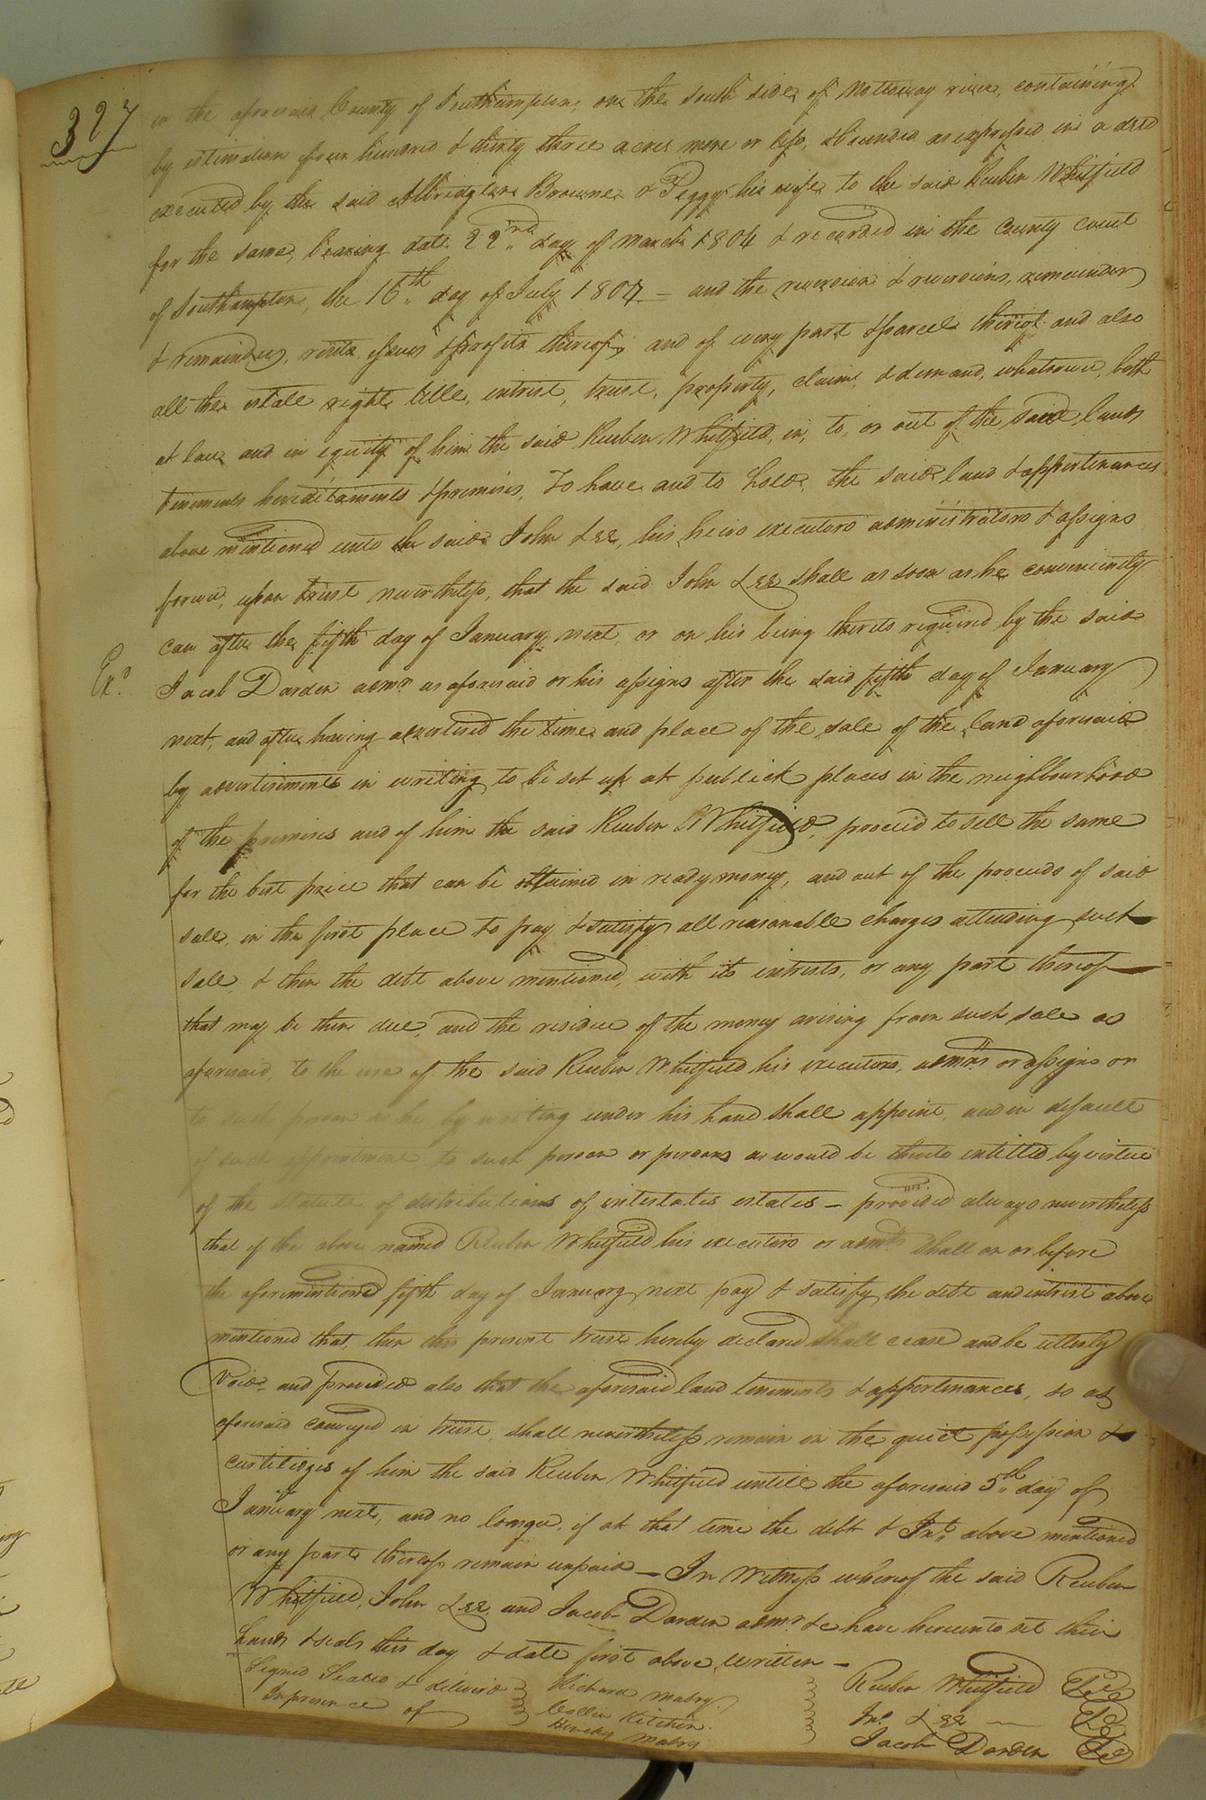 327
in the aforesaid County of Southampton, on the south side of Nottoway river, containing
by estimation four hundred & thirty three acres more or less, & bounded as expressed in a deed
executed by the said Albridgton Browne & Peggy his wife to the said Reuben Whitfield
for the same, bearing date 22nd day of March 1804 & recorded in the County court
of Southampton, the 16th day of July 1807 — and the reversion & reversions, remainder
& remainders, rents, issues & profits thereof, and of every part & parcel thereof and also
all the estate right title, intrest, trust, property, claim, & demand, whatsoever, both
at law and in equity of him the said Reuben Whitfield, in, to, or out of the said lands
tenements hereditaments & premises, To have and to hold, the said land & appertenances
above mentioned unto the said John Lee, his heirs executors administrators & assigns
forever, upon trust nevertheless, that the said John Lee shall as soon as he conveniently
can after the fifth day of January next or on his being thereto required by the said
Exd.
Jacob Darden admr. as aforesaid or his assigns after the said fifth day of January
next, and after having advertised the time and place of the sale of the land aforesaid
by advertisements in writing to be set up at publick places in the neighbourhood
of the premises and of him the said Reuben Whitfield, proceed to sell the same
for the best price that can be obtained in ready money, and out of the proceeds of said
sale, in the first place to pay & satisfy all reasonable charges attending such
sale, & then the debt above mentioned, with its intrests, or any part thereof
that may be then due, and the residue of the money arising from such sale as
aforesaid, to the use of the said Reuben Whitfield his executors, admrs or assigns or
to such person as he by writing under his hand shall appoint, and in default
of such appointment to such person or persons as would be thereto entitled by virtue
of the statute of distributions of intestates estates — provided always nevertheless
that if the above named Reuben Whitfield his executors or admrs shall on or before
the aforementioned fifth day of January next pay & satisfy, the debt and intrest above
mentioned that, then this present trust hereby declared shall cease and be utterly
void, and provided also that the aforesaid land tenements & appertenances, so as
aforesaid conveyed in trust, shall nevertheless remain in the quiet possession &
of him the said Reuben Whitfield untill the aforesaid 5th day of
January next, and no longer, if at that time the debt & Int. above mentioned
or any part thereof remain unpaid — In Witness whereof the said Reuben
Whitfield, John Lee, and Jacob Darden admr. &c have hereunto set their
hands & seals this day & date first above written —
Signed Sealed & deliverd Richard Mabry Reuben Whitfield
In presence of Kitchen Jno. Lee
Mabry Jacob Darden